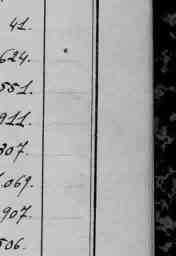 41.
624.
551.
911.
307.
069.
907.
506.